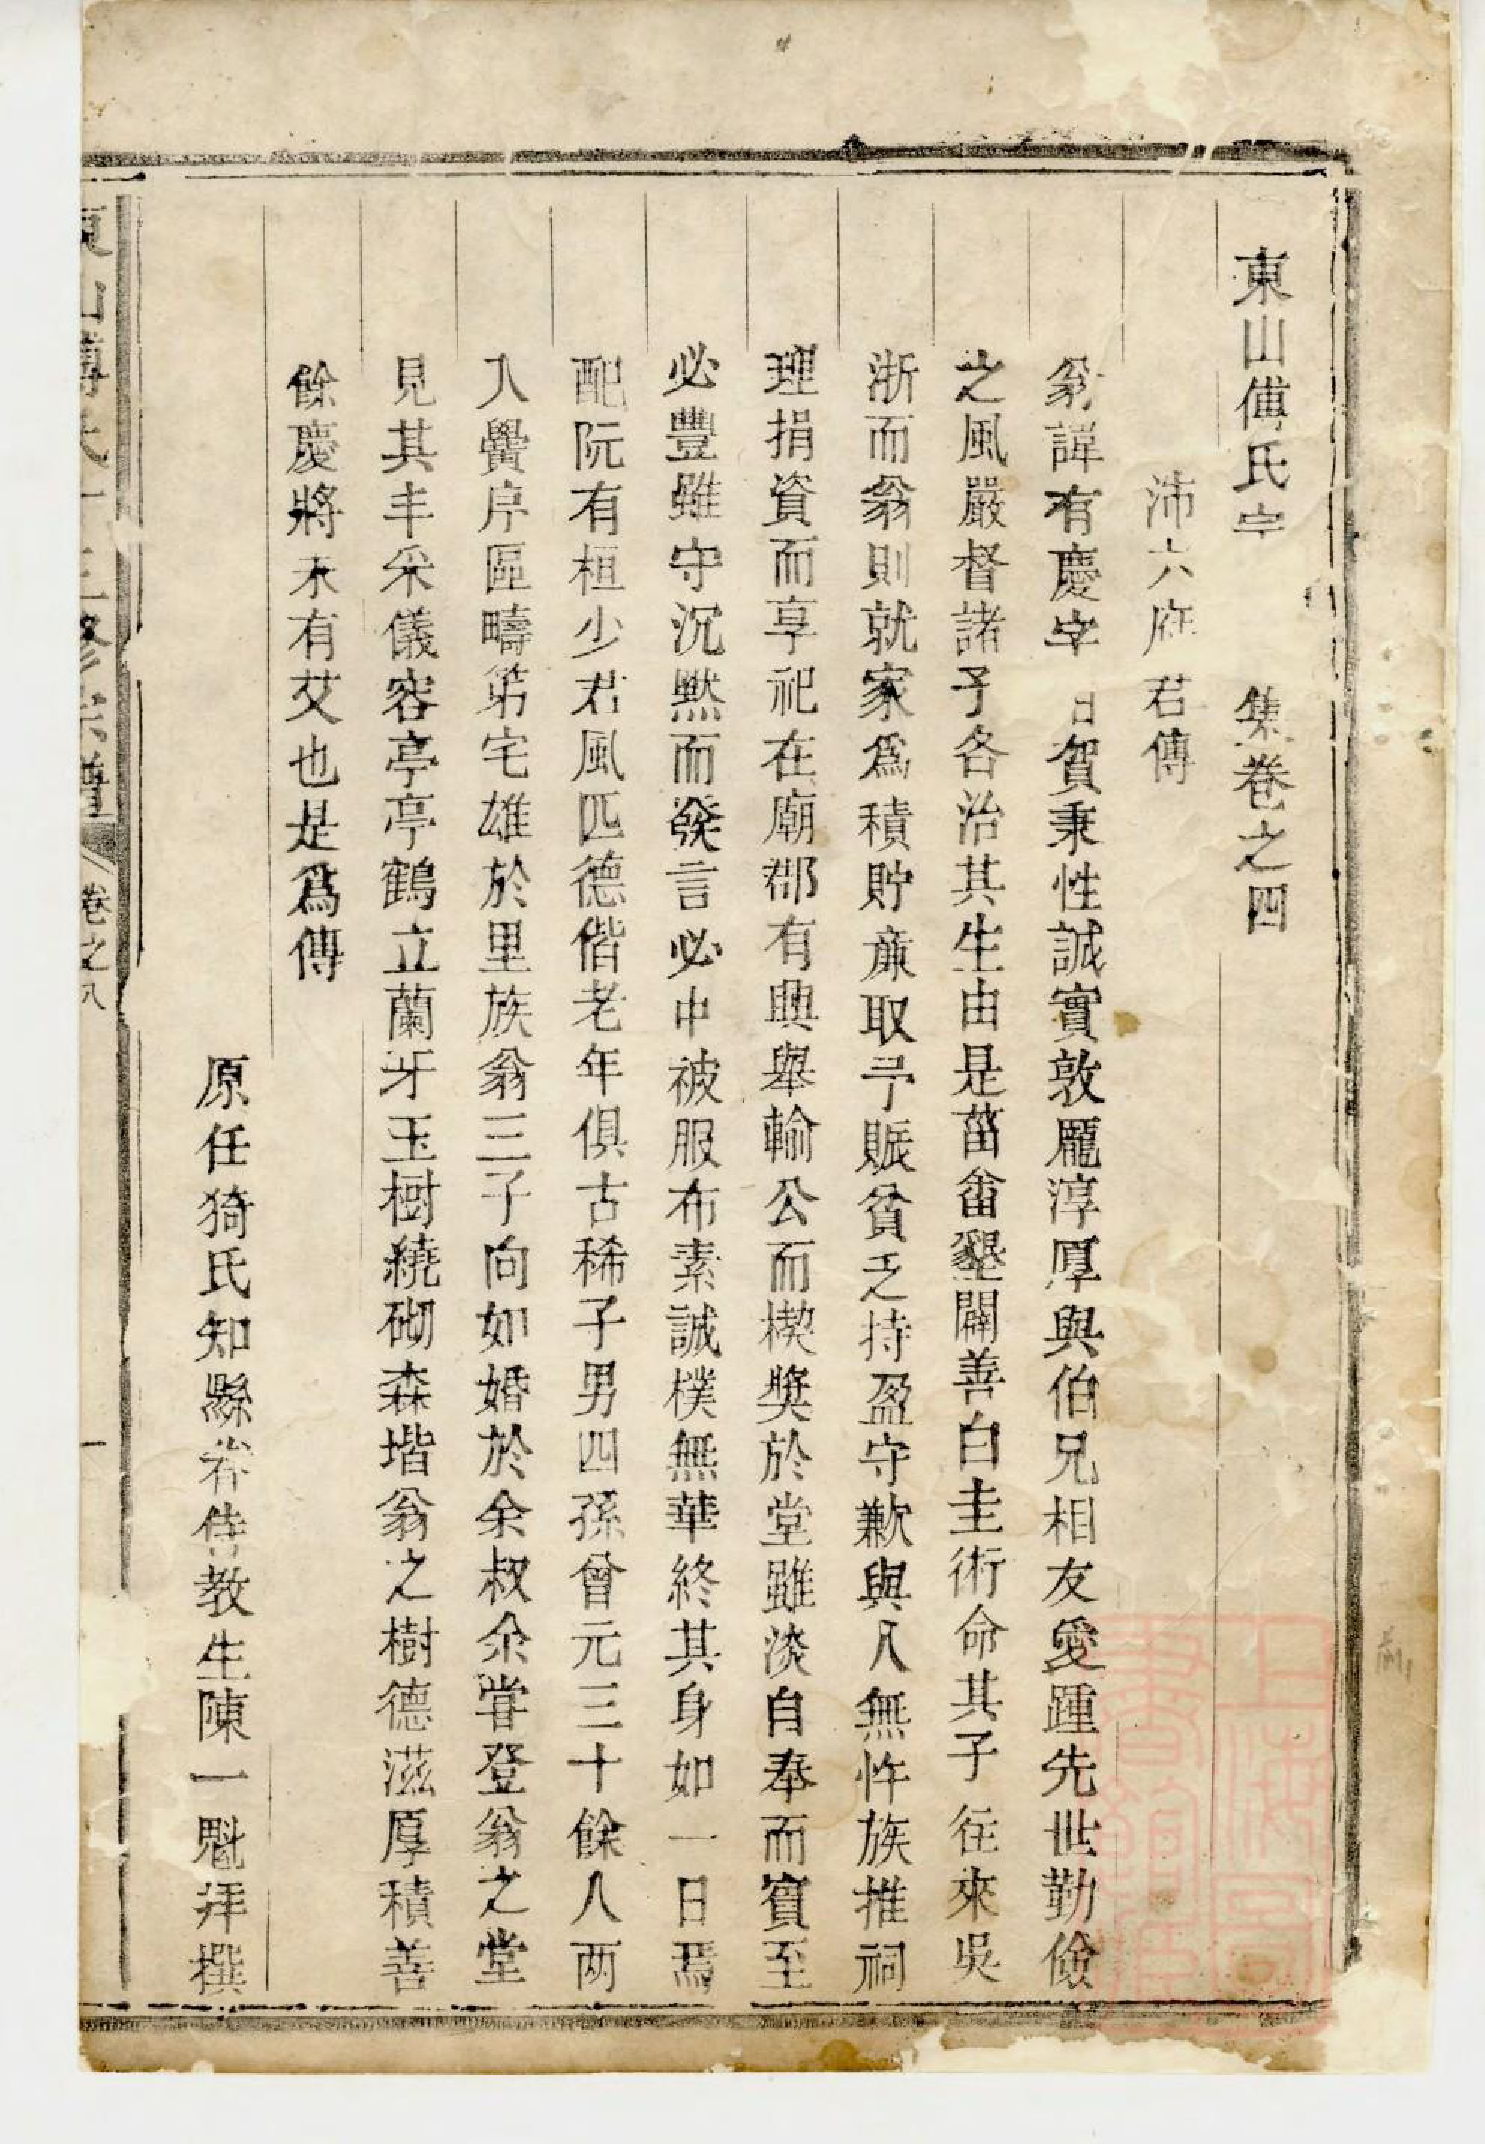 東山傅氏字 集卷之四
沛六府君傳
翁諱有慶字 日賀秉性誠實敦龐淳厚與伯兄相友愛踵先世勤儉
之風嚴督諸子各治其生由是菑畬墾闢善白圭術命其子往來吳
浙而翁則就家爲積貯廉取予賑貧乏持盈守歉與人無忤族推祠
理捐資而享祀在廟郡有興舉輸公而楔獎於堂雖淡自奉而賓至
必豐雖守沉黙而發言必中被服布素誠樸無華終其身如一日焉
配阮有桓少君風匹德偕老年俱古稀子男四孫曾元三十餘人两
入黌庠區疇第宅雄於里族翁三子向如婚於余叔余嘗登翁之堂
見其丰采儀容亭亭鶴立蘭牙玉樹繞砌森堦翁之樹德滋厚積善
餘慶將未有艾也是爲傳
原任猗氏知縣眷侍教生陳一魁拜撰
東山傅氏十三修宗譜 卷之八 一
上海圖書館藏